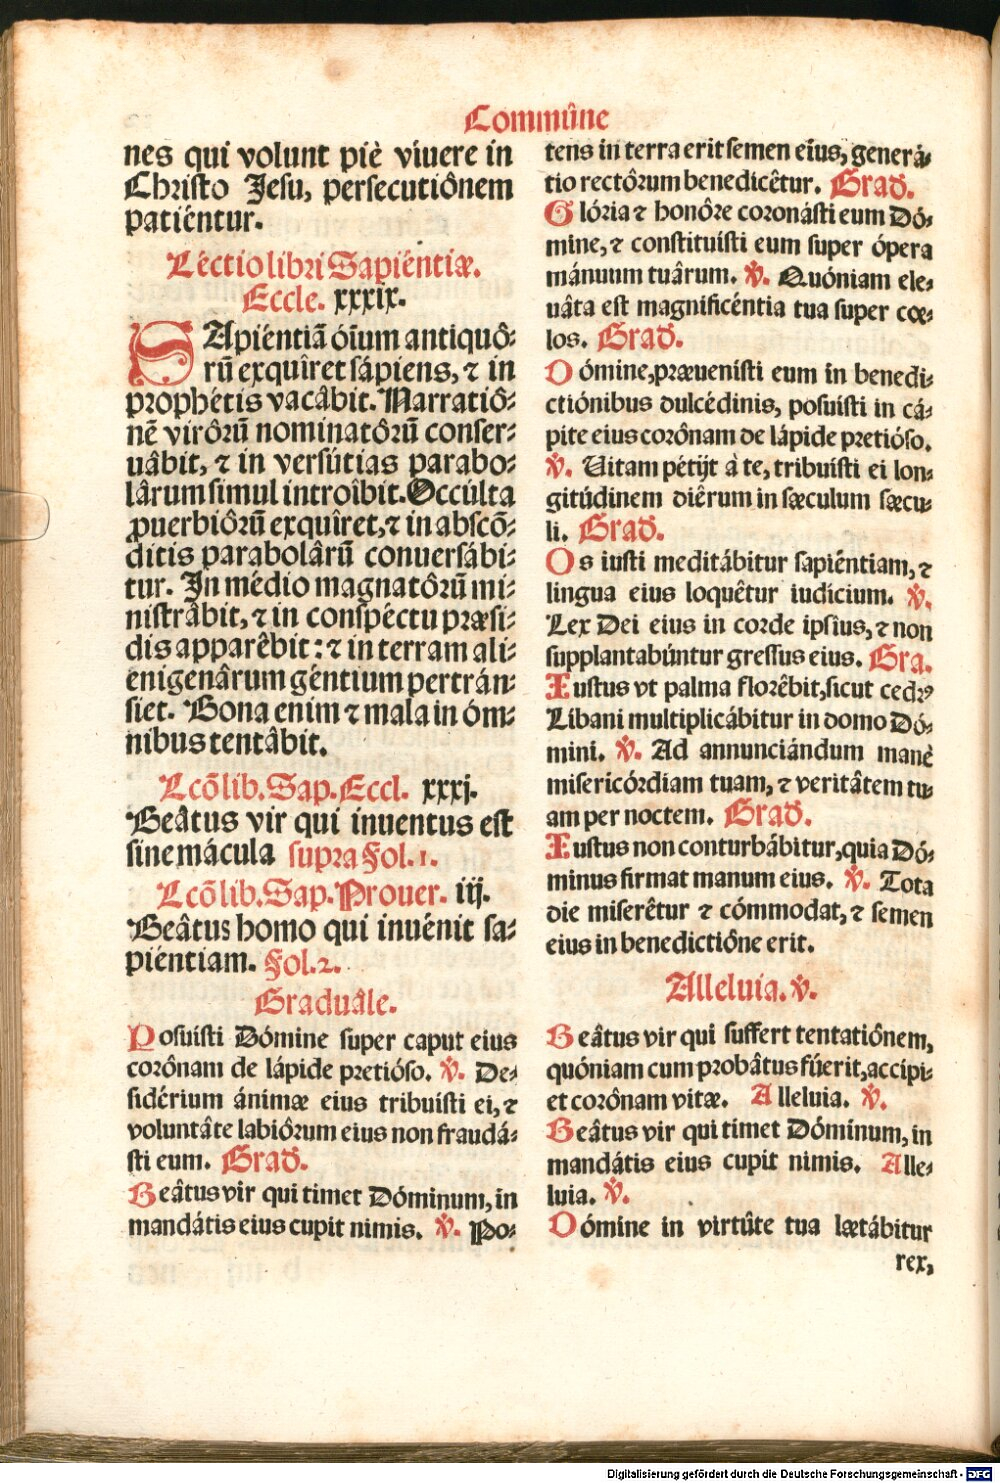 Commûne
nes qui volunt piè viuere in
Christo Jesu, persecutiônem
patiéntur.
Léctio libri Sapiéntiæ.
Eccle. xxxix.
SApiéntiā óīum antiquô-
rū exquîret sápiens, ⁊ in
prophétis vacâbit. Narratiô-
nē virôrū nominatôrū conser-
uâbit, ⁊ in versútias parabo-
lârum simul introîbit. Occúlta
ꝓuerbiôrū exquîret, ⁊ in abscō-
ditis parabolârū conuersábi-
tur. In médio magnatôrū mi-
nistrâbit, ⁊ in conspéctu præsi-
dis apparêbit: ⁊ in terram ali-
enigenârum géntium pertrán-
siet. Bona enim ⁊ mala in óm-
nibus tentâbit.
Lcō lib. Sap. Eccl. xxxj.
Beâtus vir qui inuentus est
sine mácula supra Fol. 1.
Lcō lib. Sap. Prouer. iij.
Beâtus homo qui inuénit sa-
piéntiam. Fol. 2.
Graduâle.
Posuisti Dómine super caput eius
corônam de lápide pretióso. ℣. De-
sidérium ánimæ eius tribuisti ei, ⁊
voluntâte labiôrum eius non fraudá-
sti eum. Grad.
Beâtus vir qui timet Dóminum, in
mandátis eius cupit nimis. ℣. Po-
tens in terra erit semen eius, generá-
tio rectôrum benedicêtur. Grad.
Glória ⁊ honôre coronásti eum Dó-
mine, ⁊ constituísti eum super ópera
mánuum tuârum. ℣. Quóniam ele-
uâta est magnificéntia tua super cœ-
los. Grad.
Dómine, præuenisti eum in benedi-
ctiónibus dulcédinis, posuisti in cá-
pite eius corônam de lápide pretióso.
℣. Uitam pétijt à te, tribuísti ei lon-
gitúdinem diêrum in sæculum sæcu-
li. Grad.
Os iusti meditábitur sapiêntiam, ⁊
lingua eius loquêtur iudícium. ℣.
Lex Dei eius in corde ipsius, ⁊ non
supplantabúntur gressus eius. Gra.
Iustus vt palma florêbit, sicut cedrꝰ
Libani multiplicábitur in domo Dó-
mini. ℣. Ad annunciándum manè
misericórdiam tuam, ⁊ veritâtem tu-
am per noctem. Grad.
Iustus non conturbábitur, quia Dó-
minus firmat manum eius. ℣. Tota
die miserêtur ⁊ cómmodat, ⁊ semen
eius in benedictiône erit.
Alleluia. ℣.
Beâtus vir qui suffert tentatiônem,
quóniam cum probâtus fúerit, accipi-
et corônam vitæ. Alleluia. ℣.
Beâtus vir qui timet Dóminum, in
mandátis eius cupit nimis. Alle-
luia. ℣.
Dómine in virtûte tua lætábitur
rex,
Digitalisierung gefördert durch die Deutsche Forschungsgemeinschaft - DFG